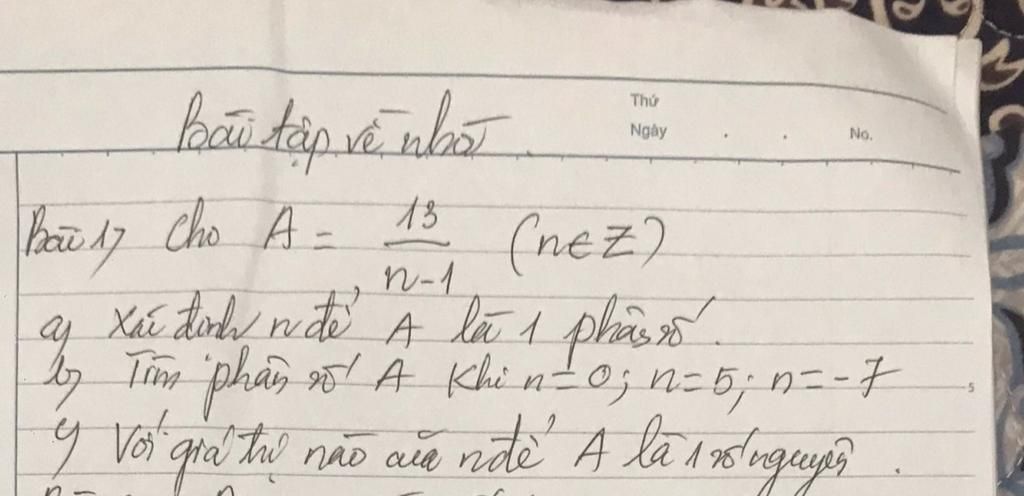 Thứ
Bài tập về nhà.
Ngày . . No.
Bài 1, Cho A = 13/(n-1) (n∈Z)
a, Xác định n để A là 1 phân số.
b, Tìm phân số A khi n=0; n=5; n=-7
5
c, Với giá trị nào của n để A là 1 số nguyên.